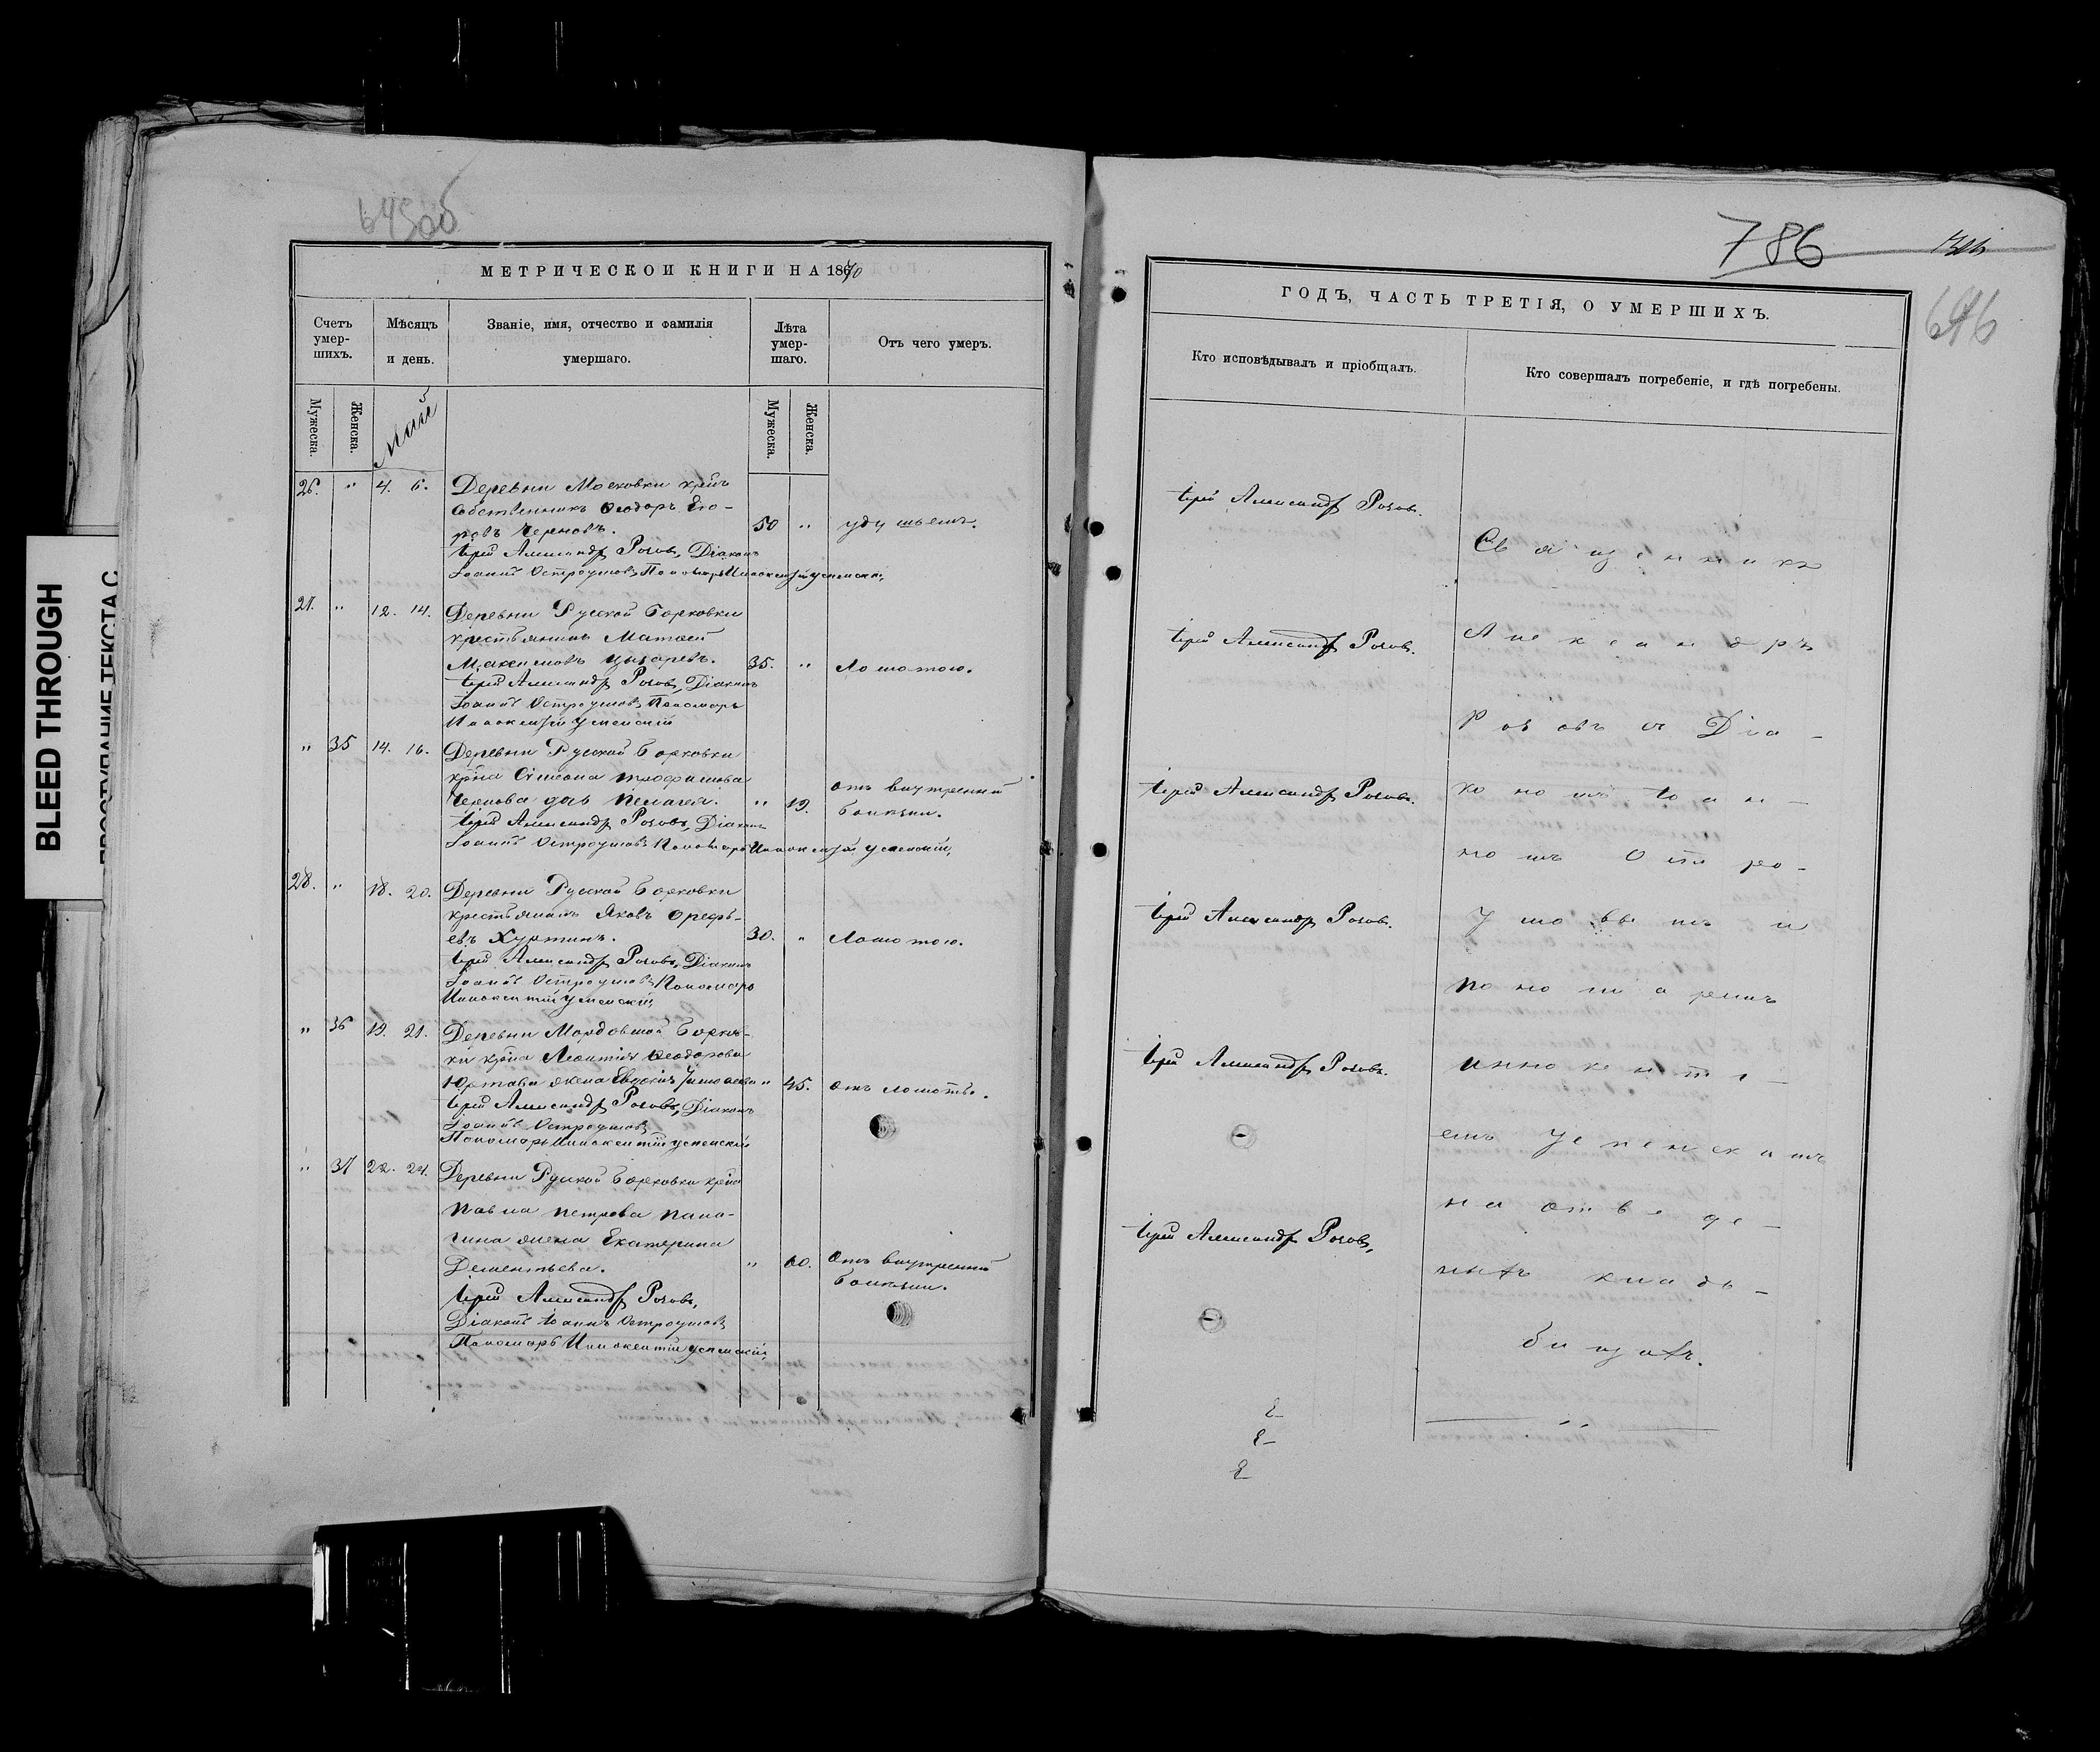 BLEED THROUGH
ПРОСТУПАНИЕ ТЕКСТА С
МЕТРИЧЕСКОИ КНИГИ НА 1870
Счетъ умер-шихъ.
Мѣсяцъ и день.
Званіе, имя, отчество и фамилія умершаго.
Лѣта умер-шаго.
Отъ чего умеръ.
Мужеска.
Женска.
Май
Мужеска.
Женска.
26. " 4. 6. Деревни Московки
собственникъ Ѳеодоръ Его-
ровъ Черновъ. 50 "
Іерей Александръ Розовъ, Діаконъ
Іоаннъ Остроумовъ Пономарь Иннокентій Успенскій,
27. " 12. 14. Деревни Русской Борковки
крестьянинъ Матвей
Максимовъ Цыгаревъ. 35. " Ломотою.
Іерей Александръ Розовъ, Діаконъ
Іоаннъ Остроумовъ Пономарь
Иннокентій Успенскій
" 35 14. 16. Деревни Русской Борковки
крна Симеона
Чернова дочь Пелагея. " 19. отъ внутренней болезни.
Іерей Александръ Розовъ, Діаконъ
Іоаннъ Остроумовъ Пономарь Иннокентій Успенскій,
28. " 18. 20. Деревни Русской Борковки
крестьянинъ Яковъ Орефь-
евъ Хуртинъ. 30. " Ломотою.
Іерей Александръ Розовъ, Діаконъ
Іоаннъ Остроумовъ Пономарь
Иннокентій Успенскій
" 36 19. 21. Деревни Мордовской Борков-
ки крна Леонтія Ѳеодорова
жена Евдокія " 45. отъ ломоты.
Іерей Александръ Розовъ, Діаконъ
Іоаннъ Остроумовъ
Пономарь Иннокентій Успенскій
" 37 22. 24. Деревни Руской Борковки крна
Павла Петрова Пана-
гина жена Екатерина
Дементьева. " 60. Отъ внутренней болезни.
Іерей Александръ Розовъ,
Діаконъ Іоаннъ Остроумовъ
Пономарь Иннокентій Успенскій,
786
646
ГОДЪ, ЧАСТЬ ТРЕТІЯ, О УМЕРШИХЪ.
Кто исповѣдывалъ и пріобщалъ.
Кто совершалъ погребеніе, и гдѣ погребены.
Іерей Александръ Розовъ.
Іерей Александръ Розовъ.
Іерей Александръ Розовъ.
Іерей Александръ Розовъ.
Іерей Александръ Розовъ.
Іерей Александръ Розовъ,
Священникъ
Александръ
Розовъ съ Діа-
кономъ Іоан-
номъ Остро-
умовымъ и
пономаремъ
Инноке​нті-
емъ Успенскимъ
на отведе-
нномъ клад-
бищѣ.